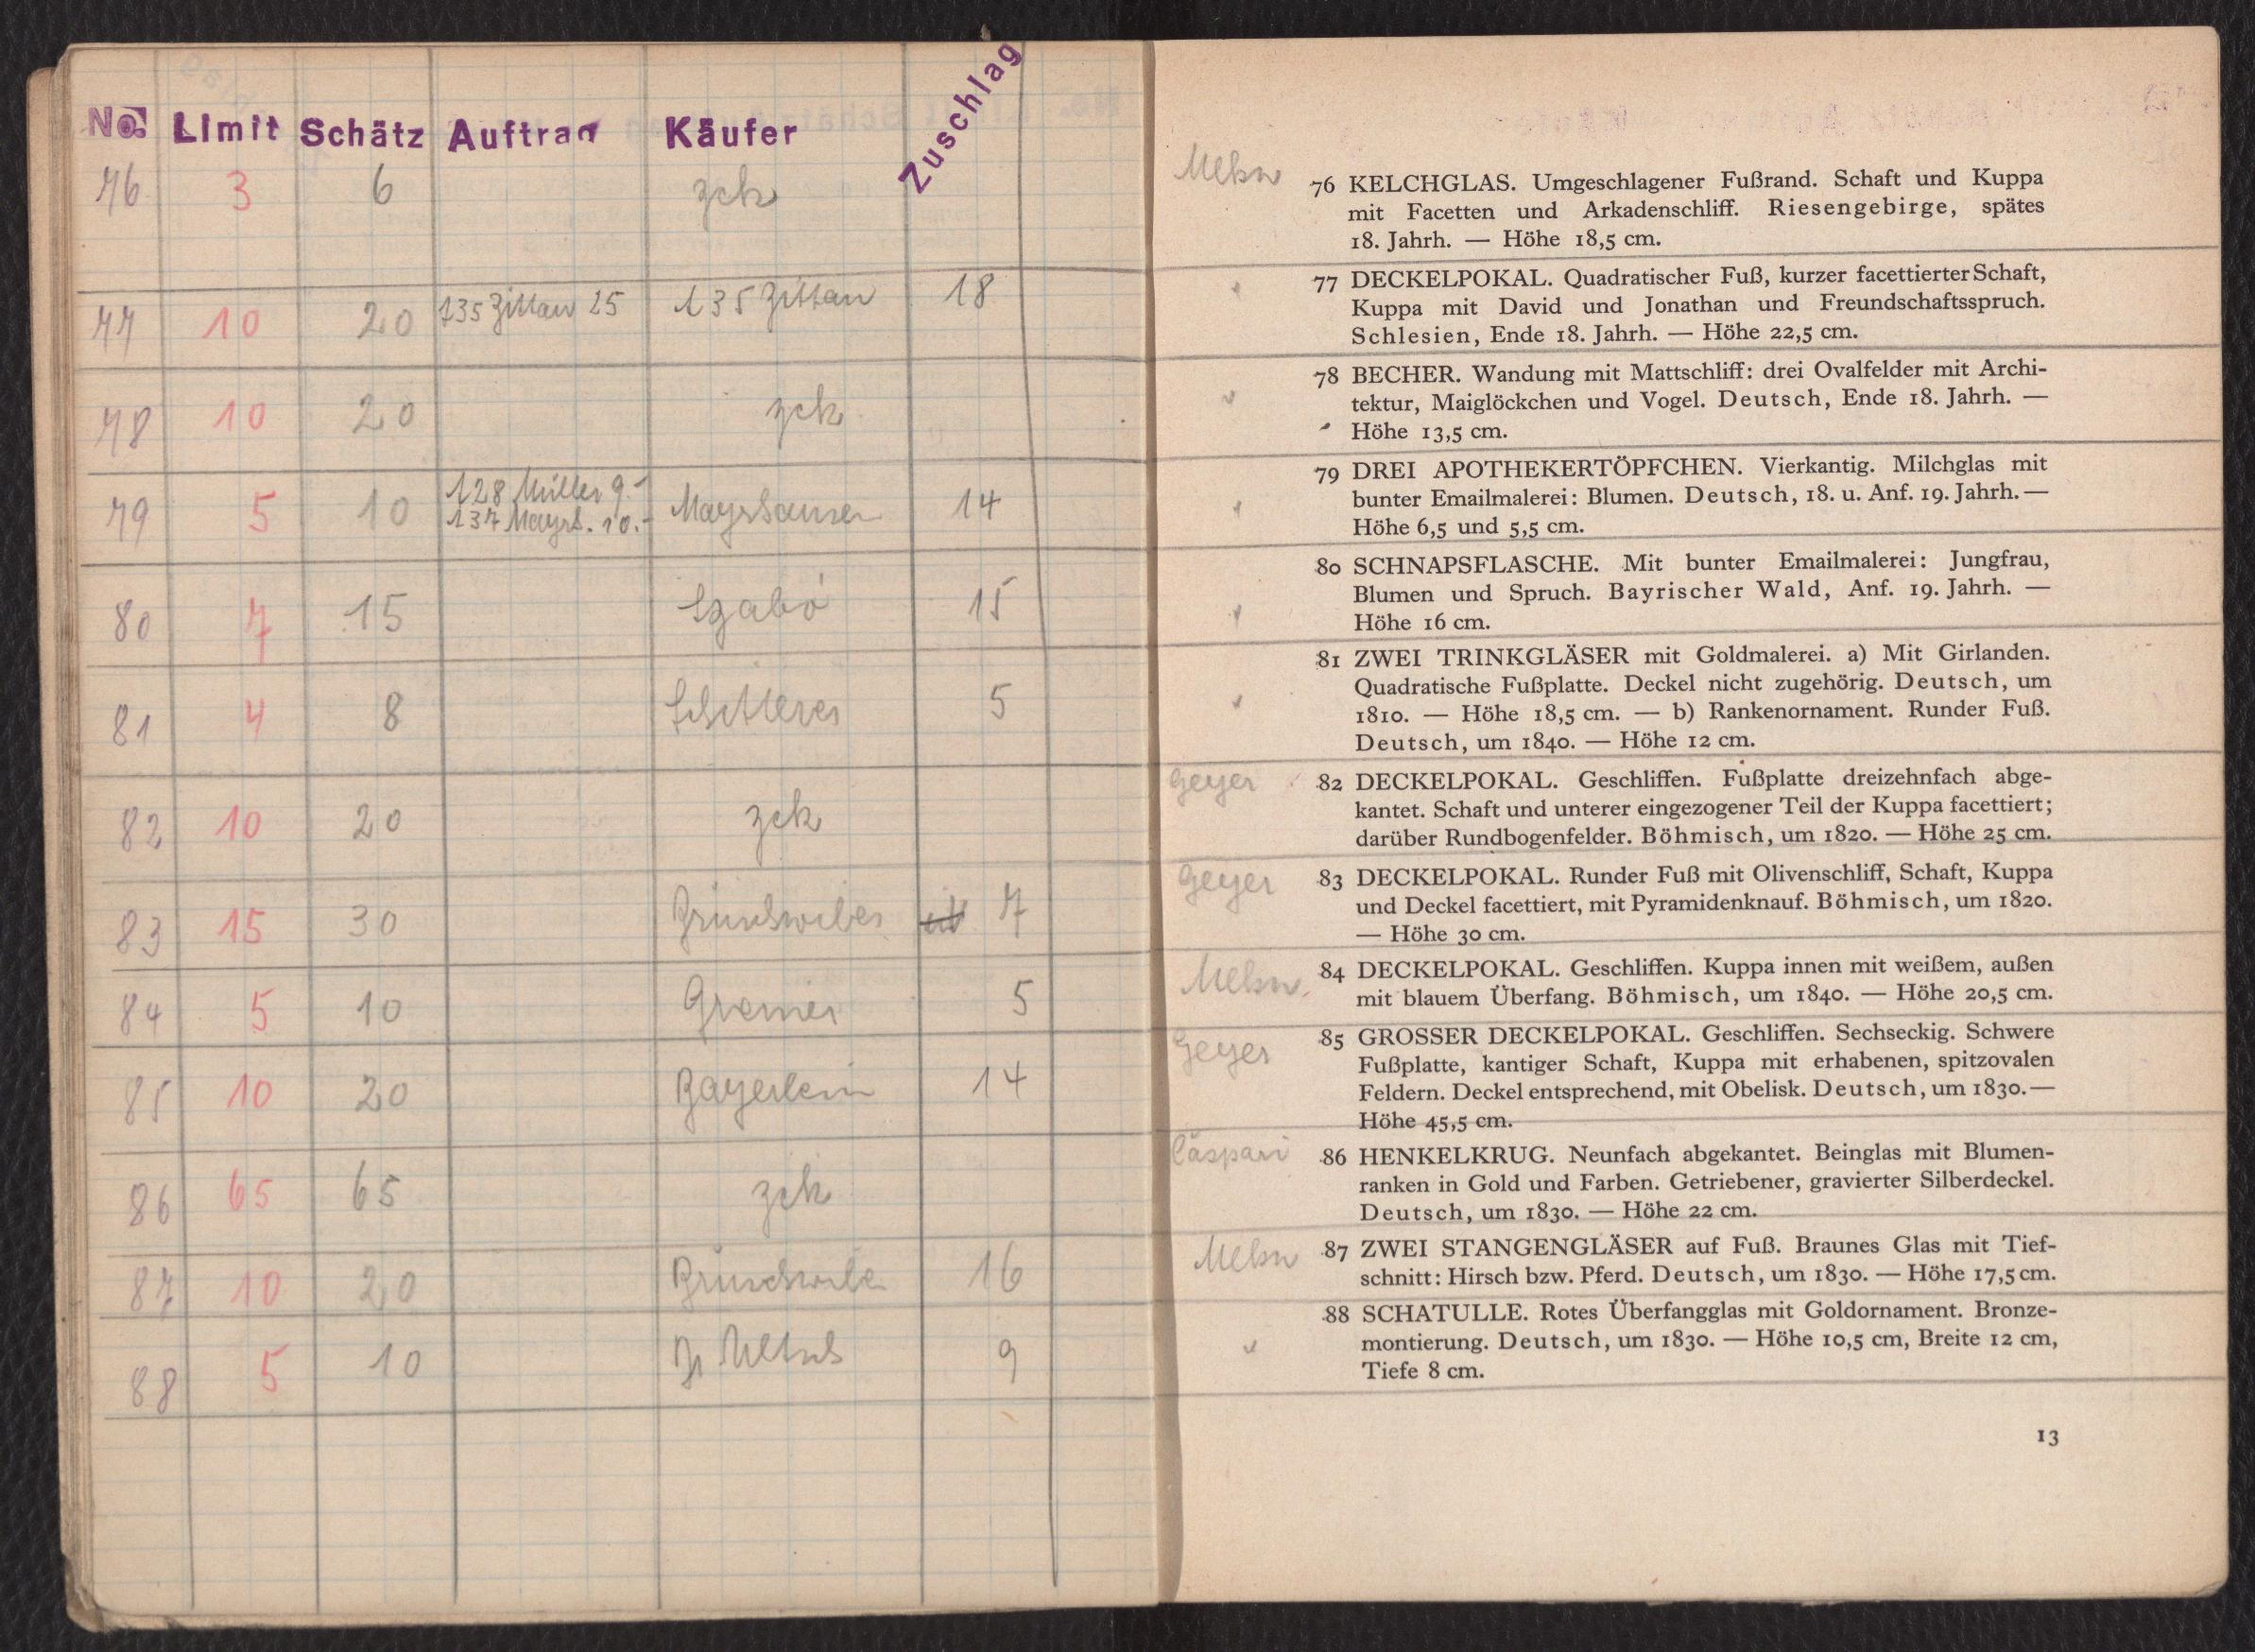 No. Limit Schätz Auftrag Käufer Zuschlag
76 3 6 zck
77 10 20 135 Zittau 25 135 Zittau 18
78 10 20 zck
79 5 10 128 Müller 9.-
137 Mayrh. 10.- Mayrhauser 14
80 7 15 Szabó 15
81 4 8 5
82 10 20 zck
83 15 30 7
84 5 10 Greiner 5
85 10 20 Bayerlein 14
86 65 65 zck
87 10 20 16
88 5 10 9
76 KELCHGLAS. Umgeschlagener Fußrand. Schaft und Kuppa
mit Facetten und Arkadenschliff. Riesengebirge, spätes
18. Jahrh. — Höhe 18,5 cm.
77 DECKELPOKAL. Quadratischer Fuß, kurzer facettierter Schaft,
Kuppa mit David und Jonathan und Freundschaftsspruch.
Schlesien, Ende 18. Jahrh. — Höhe 22,5 cm.
78 BECHER. Wandung mit Mattschliff: drei Ovalfelder mit Archi-
tektur, Maiglöckchen und Vogel. Deutsch, Ende 18. Jahrh. —
Höhe 13,5 cm.
79 DREI APOTHEKERTÖPFCHEN. Vierkantig. Milchglas mit
bunter Emailmalerei: Blumen. Deutsch, 18. u. Anf. 19. Jahrh. —
Höhe 6,5 und 5,5 cm.
80 SCHNAPSFLASCHE. Mit bunter Emailmalerei: Jungfrau,
Blumen und Spruch. Bayrischer Wald, Anf. 19. Jahrh. —
Höhe 16 cm.
81 ZWEI TRINKGLÄSER mit Goldmalerei. a) Mit Girlanden.
Quadratische Fußplatte. Deckel nicht zugehörig. Deutsch, um
1810. — Höhe 18,5 cm. — b) Rankenornament. Runder Fuß.
Deutsch, um 1840. — Höhe 12 cm.
Geyer 82 DECKELPOKAL. Geschliffen. Fußplatte dreizehnfach abge-
kantet. Schaft und unterer eingezogener Teil der Kuppa facettiert;
darüber Rundbogenfelder. Böhmisch, um 1820. — Höhe 25 cm.
Geyer 83 DECKELPOKAL. Runder Fuß mit Olivenschliff, Schaft, Kuppa
und Deckel facettiert, mit Pyramidenknauf. Böhmisch, um 1820.
— Höhe 30 cm.
84 DECKELPOKAL. Geschliffen. Kuppa innen mit weißem, außen
mit blauem Überfang. Böhmisch, um 1840. — Höhe 20,5 cm.
Geyer 85 GROSSER DECKELPOKAL. Geschliffen. Sechseckig. Schwere
Fußplatte, kantiger Schaft, Kuppa mit erhabenen, spitzovalen
Feldern. Deckel entsprechend, mit Obelisk. Deutsch, um 1830. —
Höhe 45,5 cm.
Cäspari 86 HENKELKRUG. Neunfach abgekantet. Beinglas mit Blumen-
ranken in Gold und Farben. Getriebener, gravierter Silberdeckel.
Deutsch, um 1830. — Höhe 22 cm.
87 ZWEI STANGENGLÄSER auf Fuß. Braunes Glas mit Tief-
schnitt: Hirsch bzw. Pferd. Deutsch, um 1830. — Höhe 17,5 cm.
88 SCHATULLE. Rotes Überfangglas mit Goldornament. Bronze-
montierung. Deutsch, um 1830. — Höhe 10,5 cm, Breite 12 cm,
Tiefe 8 cm.
13